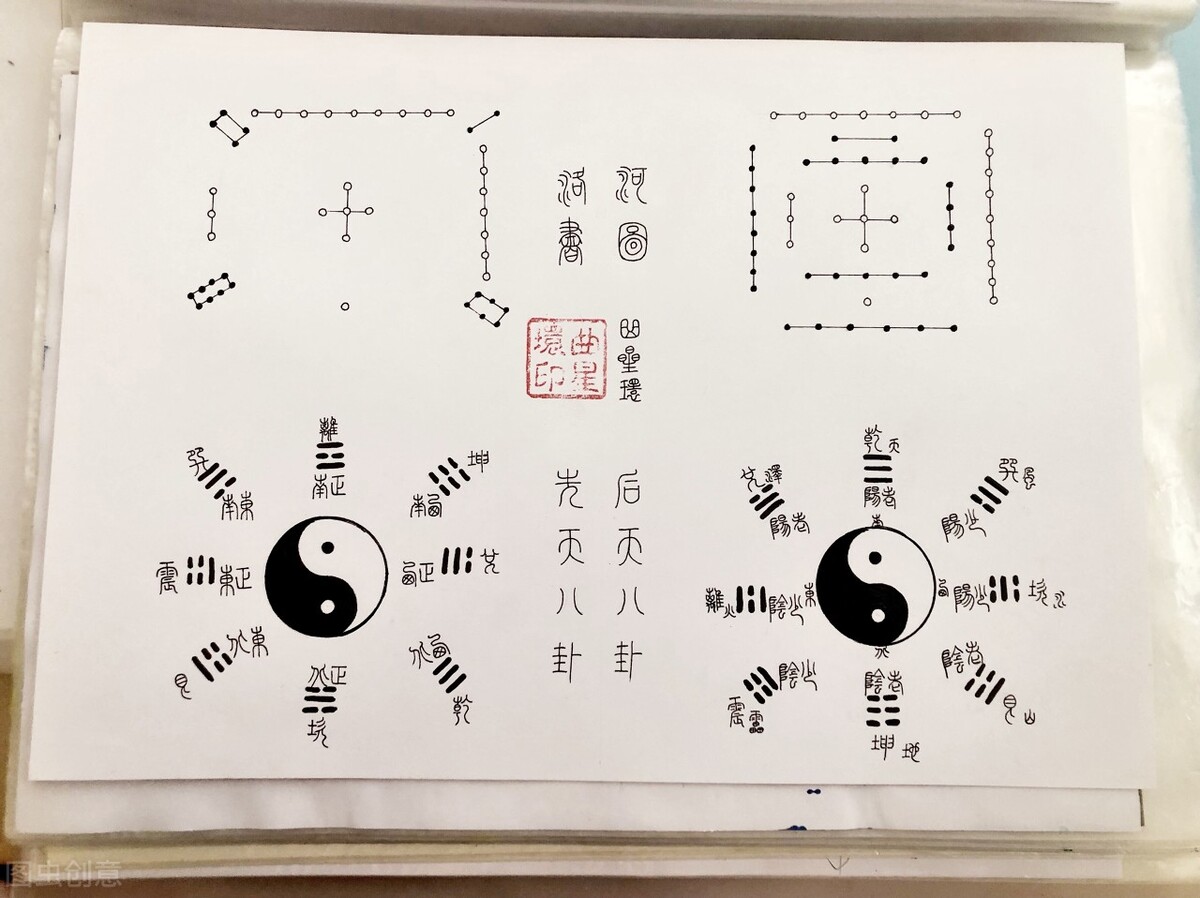 河圖
洛書
曲星環
曲星
環印
后天八卦
先天八卦
離
南正
坤
南西
兌
西正
乾
北西
坎
北正
艮
北東
震
東正
巽
南東
乾天
陽老
巽風
陽少
坎水
陽少
西
艮山
陰老
坤地
陰老
北
震雷
陰少
離火
陰少
東
兌澤
陽老
图虫创意